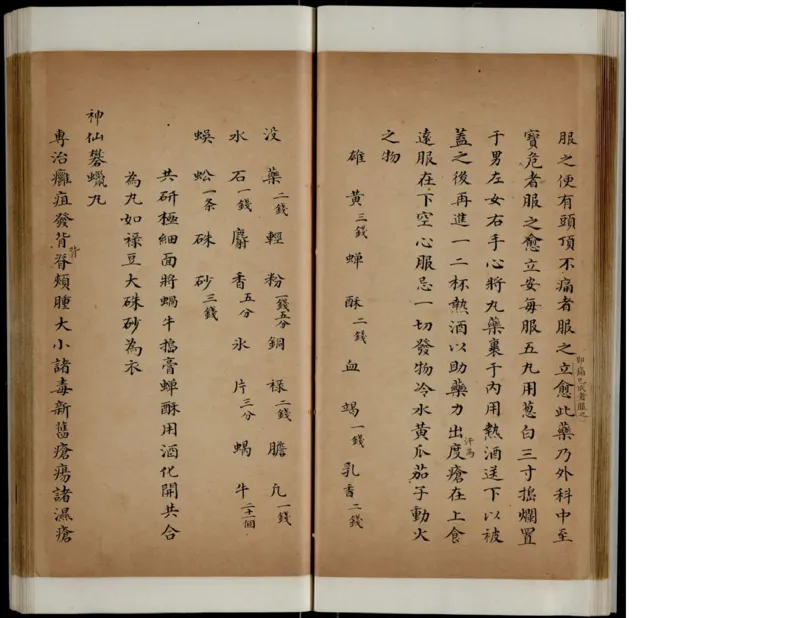 服之便有頭頂不痛者服之立愈此藥乃外科中至
即痛已成者服之
寶危者服之愈立安每服五丸用蔥白三寸搗爛置
于男左女右手心將丸藥裹于內用熱酒送下以被
蓋之後再進一二杯熱酒以助藥力出度瘡在上食
汗為
遠服在下空心服忌一切發物冷水黃瓜茄子動火
之物
雄黃三錢 蟬酥二錢 血竭一錢 乳香二錢
没藥二錢 輕粉一錢五分 銅祿二錢 膽凢一錢
水石一錢 麝香五分 氷片三分 蝸牛二十一個
蜈蚣一条 硃砂三錢
共研極細面將蝸牛搗膏蟬酥用酒化開共合
為丸如祿豆大硃砂為衣
神仙礬蠟丸
專治癰疽發背脊頰腫大小諸毒新舊瘡瘍諸濕瘡
背